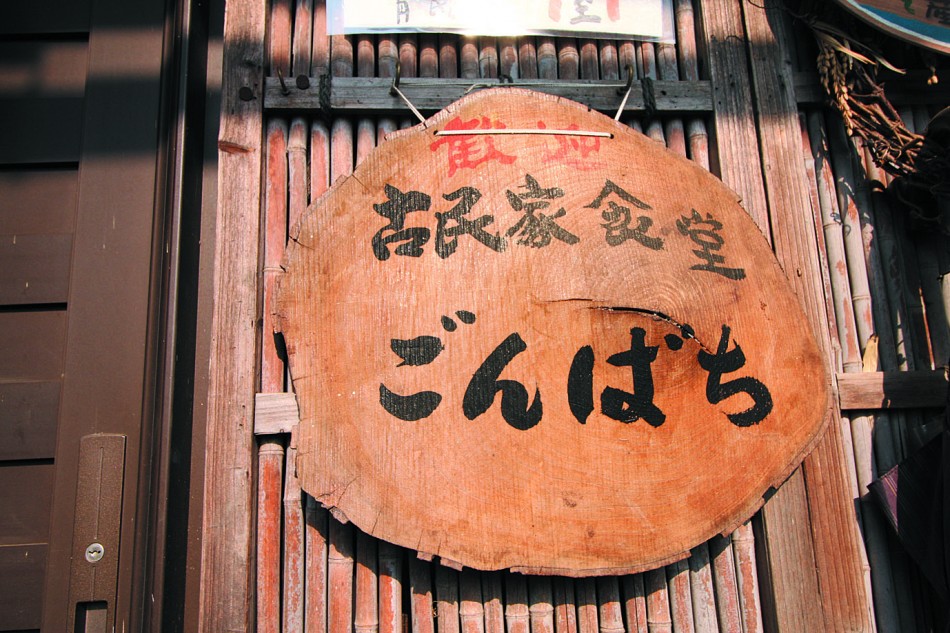 歓迎
古民家食堂
ごんばち